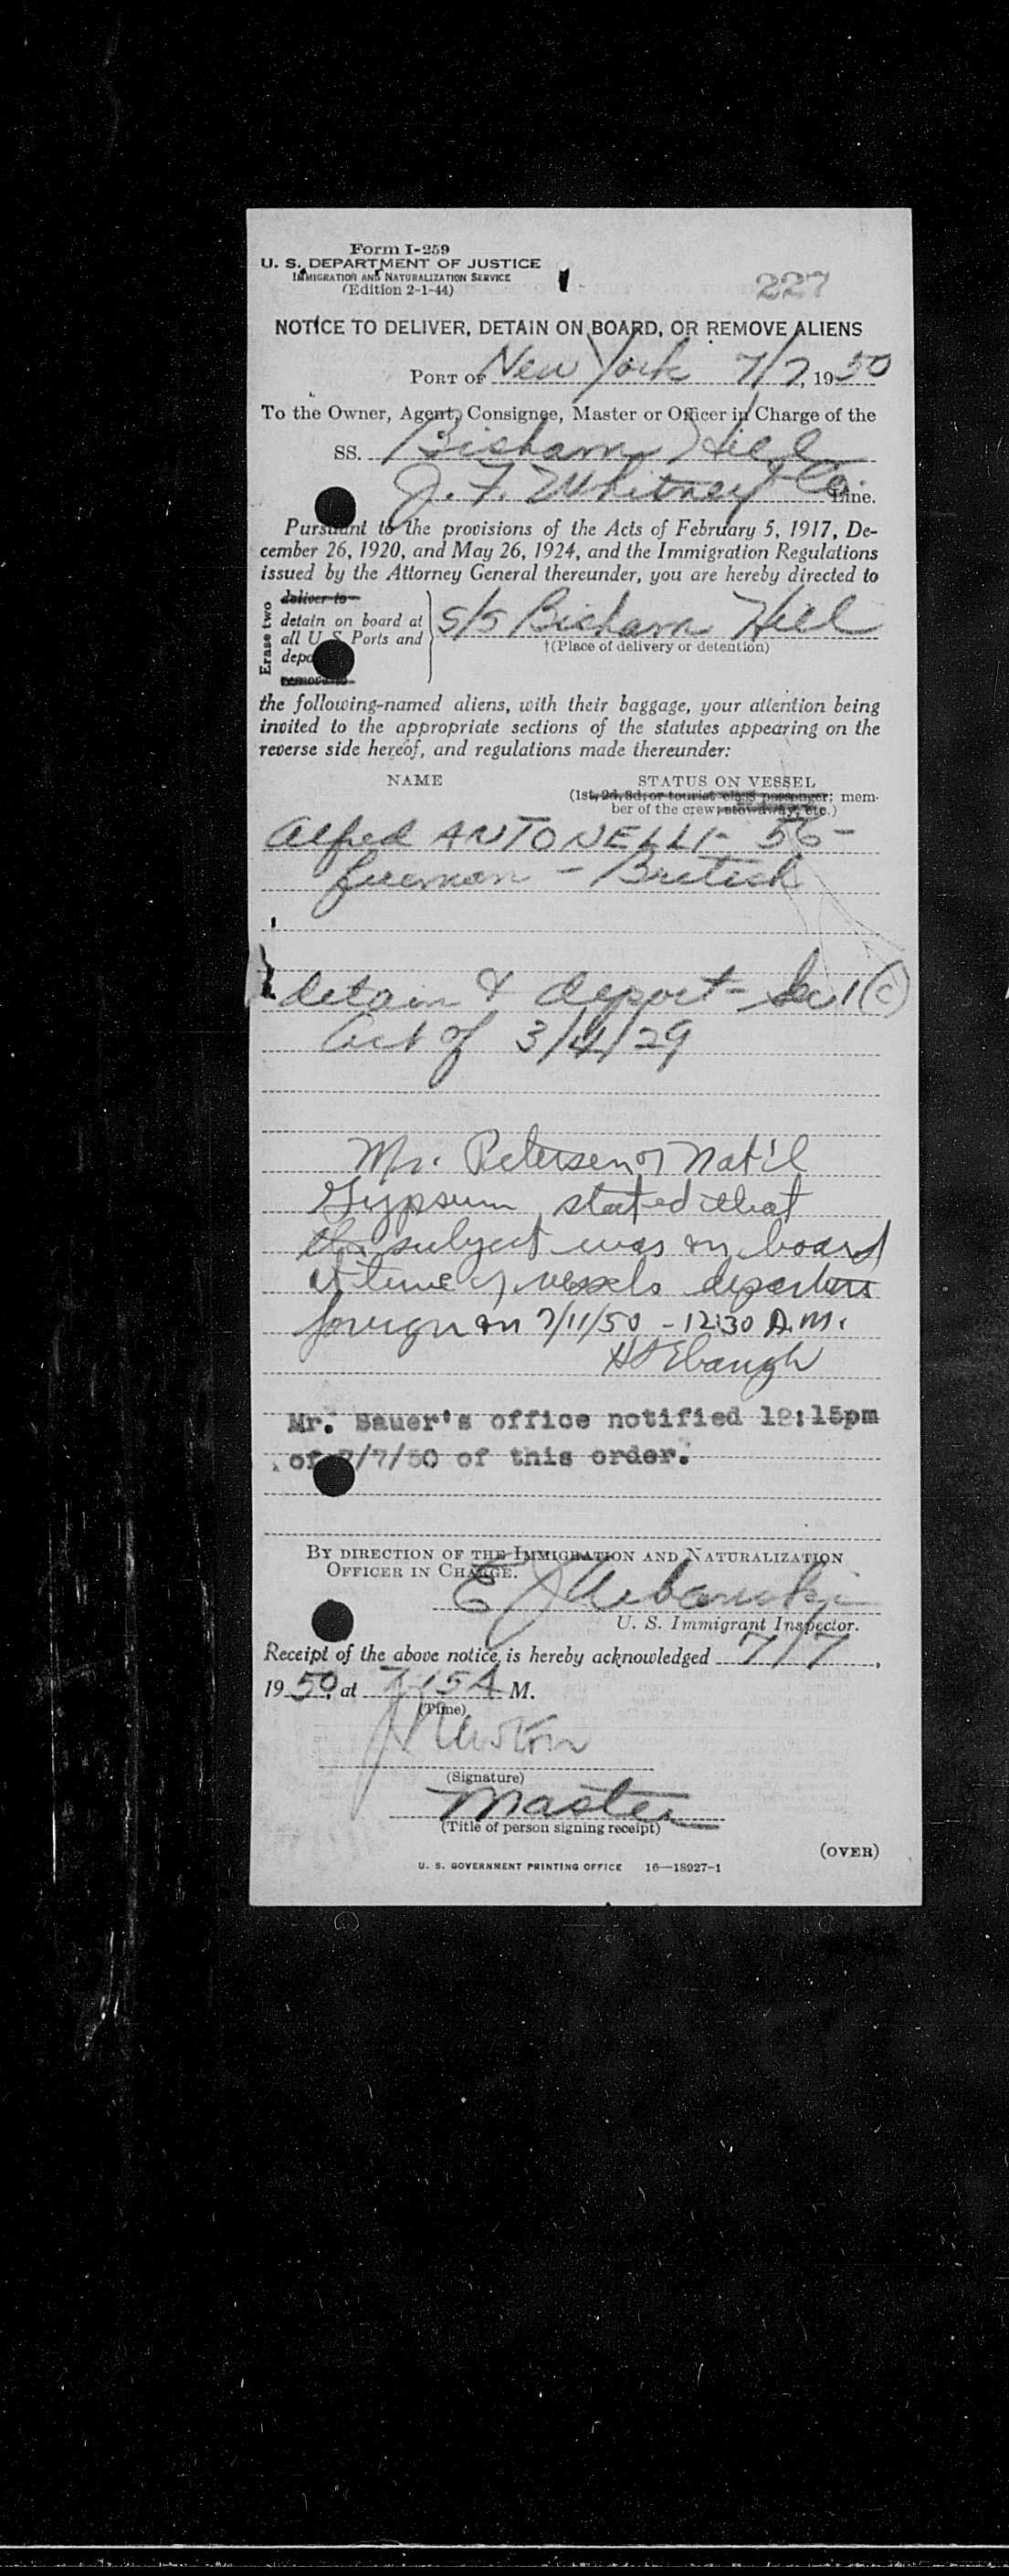 Form I-259
U. S. DEPARTMENT OF JUSTICE
IMMIGRATION AND NATURALIZATION SERVICE
(Edition 2-1-44)
227
NOTICE TO DELIVER, DETAIN ON BOARD, OR REMOVE ALIENS
PORT OF New York 7/7, 1950
To the Owner, Agent, Consignee, Master or Officer in Charge of the
SS. Bisham Hill
J. F. Whitney & Co. Line.
Pursuant to the provisions of the Acts of February 5, 1917, De-
cember 26, 1920, and May 26, 1924, and the Immigration Regulations
issued by the Attorney General thereunder, you are hereby directed to
Erase two
deliver to
detain on board at
all U S Ports and
depo
remove to
s/s Bisham Hill
†(Place of delivery or detention)
the following-named aliens, with their baggage, your attention being
invited to the appropriate sections of the statutes appearing on the
reverse side hereof, and regulations made thereunder:
NAME STATUS ON VESSEL
(1st, 2d, 3d, or tourist class passenger; mem-
ber of the crew; stowaway, etc.)
Alfred ANTONELLI - 56 -
fireman - British
detain & deport - Sec 1 (c)
Act of 3/4/29
Mr. Petersen of Nat'l
Gypsum stated that
the subject was on board
at time of vessels departure
foreign on 7/11/50 - 12:30 A.M.
HS Ebaugh
Mr. Bauer's office notified 12:15pm
of 7/7/50 of this order.
BY DIRECTION OF THE IMMIGRATION AND NATURALIZATION
OFFICER IN CHARGE.
E J Urbanski
U. S. Immigrant Inspector.
Receipt of the above notice is hereby acknowledged 7/7,
1950, at 7:15 A M.
(Time)
(Signature)
Master
(Title of person signing receipt)
(OVER)
U. S. GOVERNMENT PRINTING OFFICE 16—18927-1